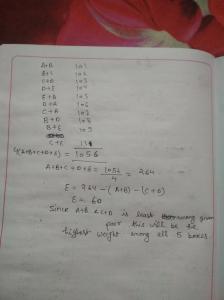 A+B 101
B+C 102
C+D 103
D+E 104
E+A 105
D+A 106
C+A 107
B+D 108
B+E 109
C+E
4(A+B+C+D+E) = 1056
A+B+C+D+E = 1056/4 = 264
E = 264 - (A+B) - (C+D)
E = 60
Since A+B & C+D is least among given
pair this will be the
highest weight among all 5 boxes.